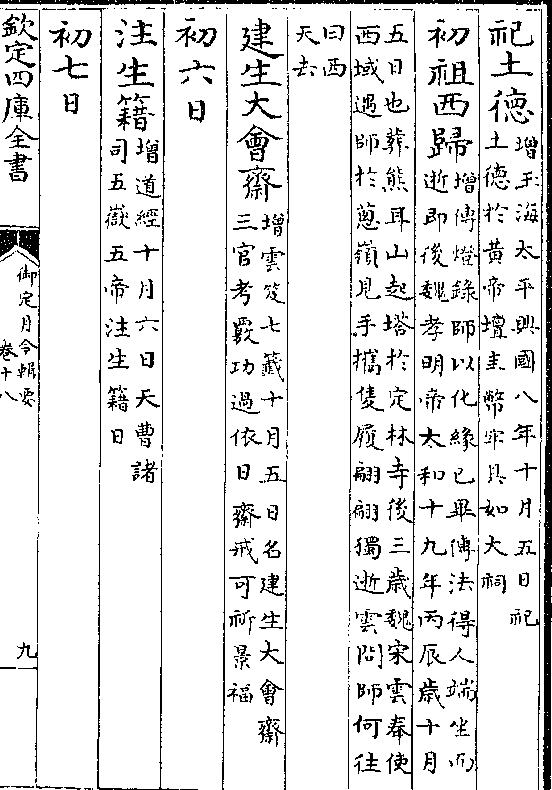 祀土德增玉海太平興國八年十月五日祀
土德於黄帝壇圭幣牢具如大祠
初祖西歸增傳燈錄師以化緣已畢傳法得人端坐而
逝即後魏孝明帝太和十九年丙辰歲十月
五日也葬熊耳山起塔於定林寺後三歲魏宋雲奉使
西域遇師於蔥嶺見手攜隻履翩翩獨逝雲問師何往
曰西
天去
建生大會齋增雲笈七籤十月五日名建生大會齋
三官考覈功過依日齋戒可祈景福
初六日
注生籍增道經十月六日天曹諸
司五嶽五帝注生籍日
初七日
欽定四庫全書
御定月令輯要
卷十八
九